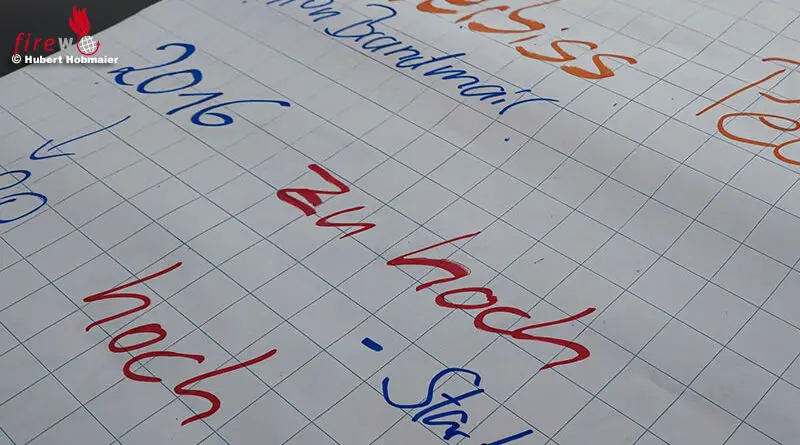 firew
© Hubert Hobmaier
Brandmair
2016
zu hoch
hoch
- Star